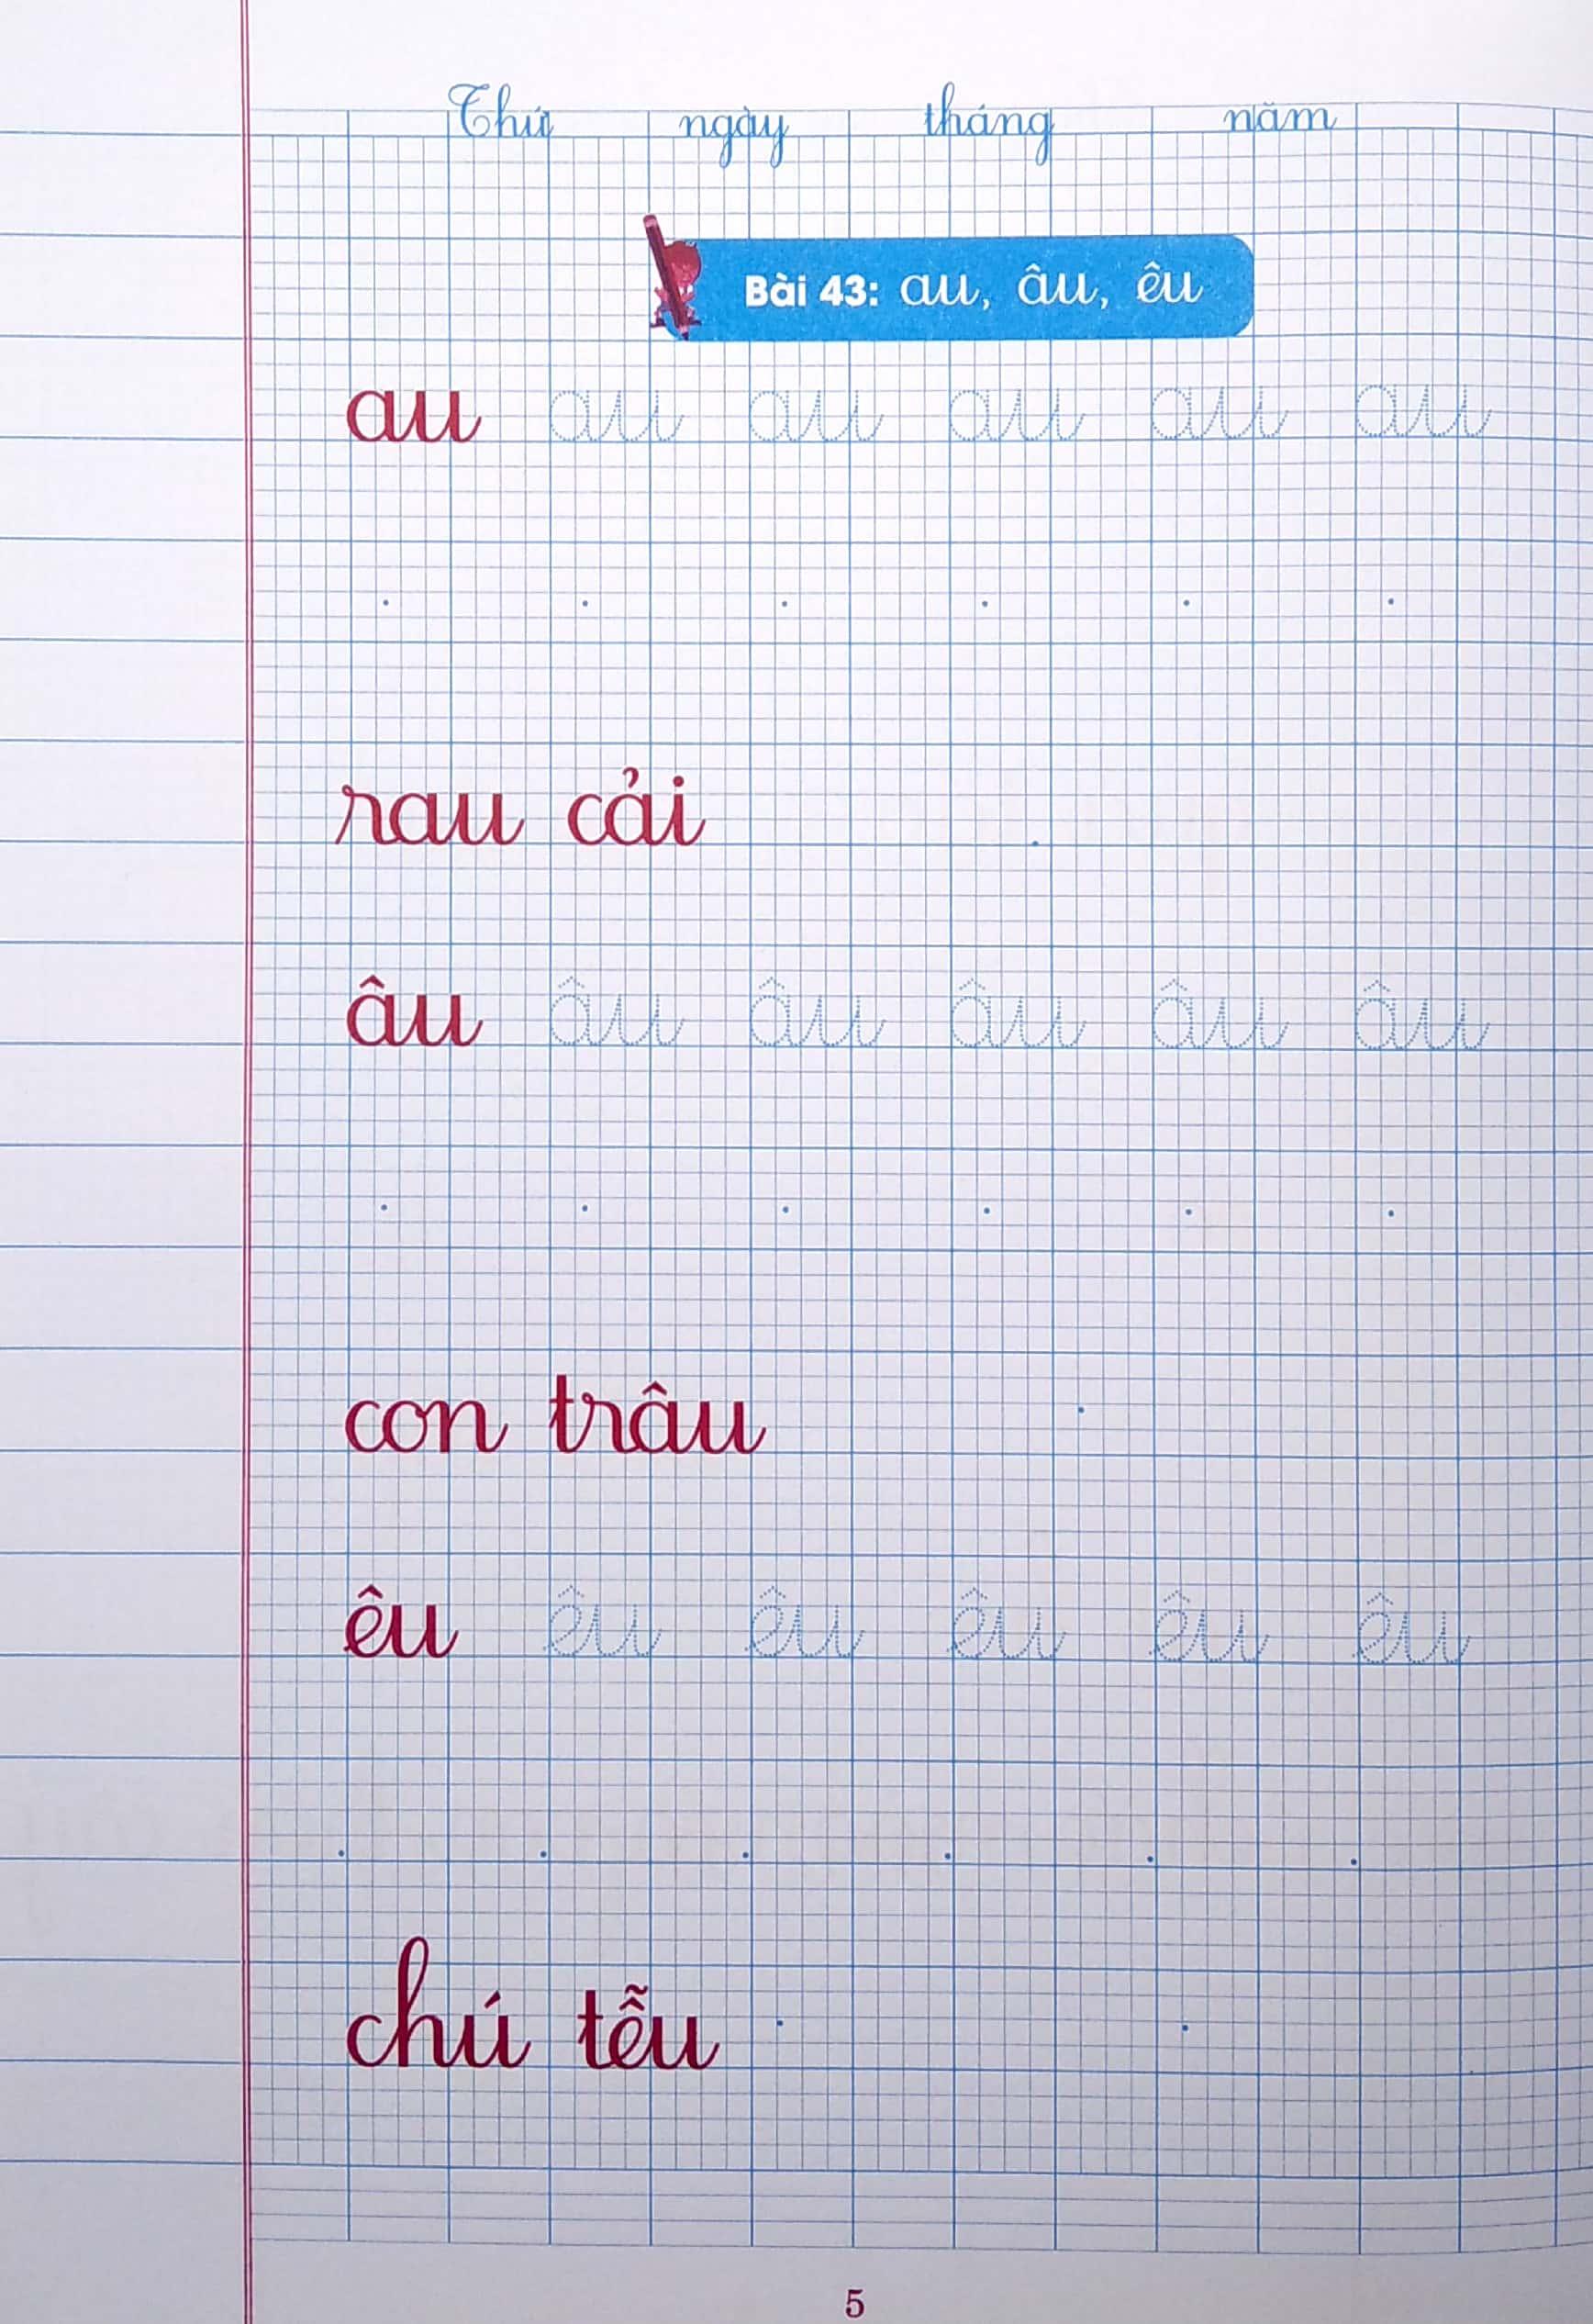 Thứ ngày tháng năm
Bài 43: au, âu, êu
au au au au au au
rau cải
âu âu âu âu âu âu
con trâu
êu êu êu êu êu êu
chú tễu
5